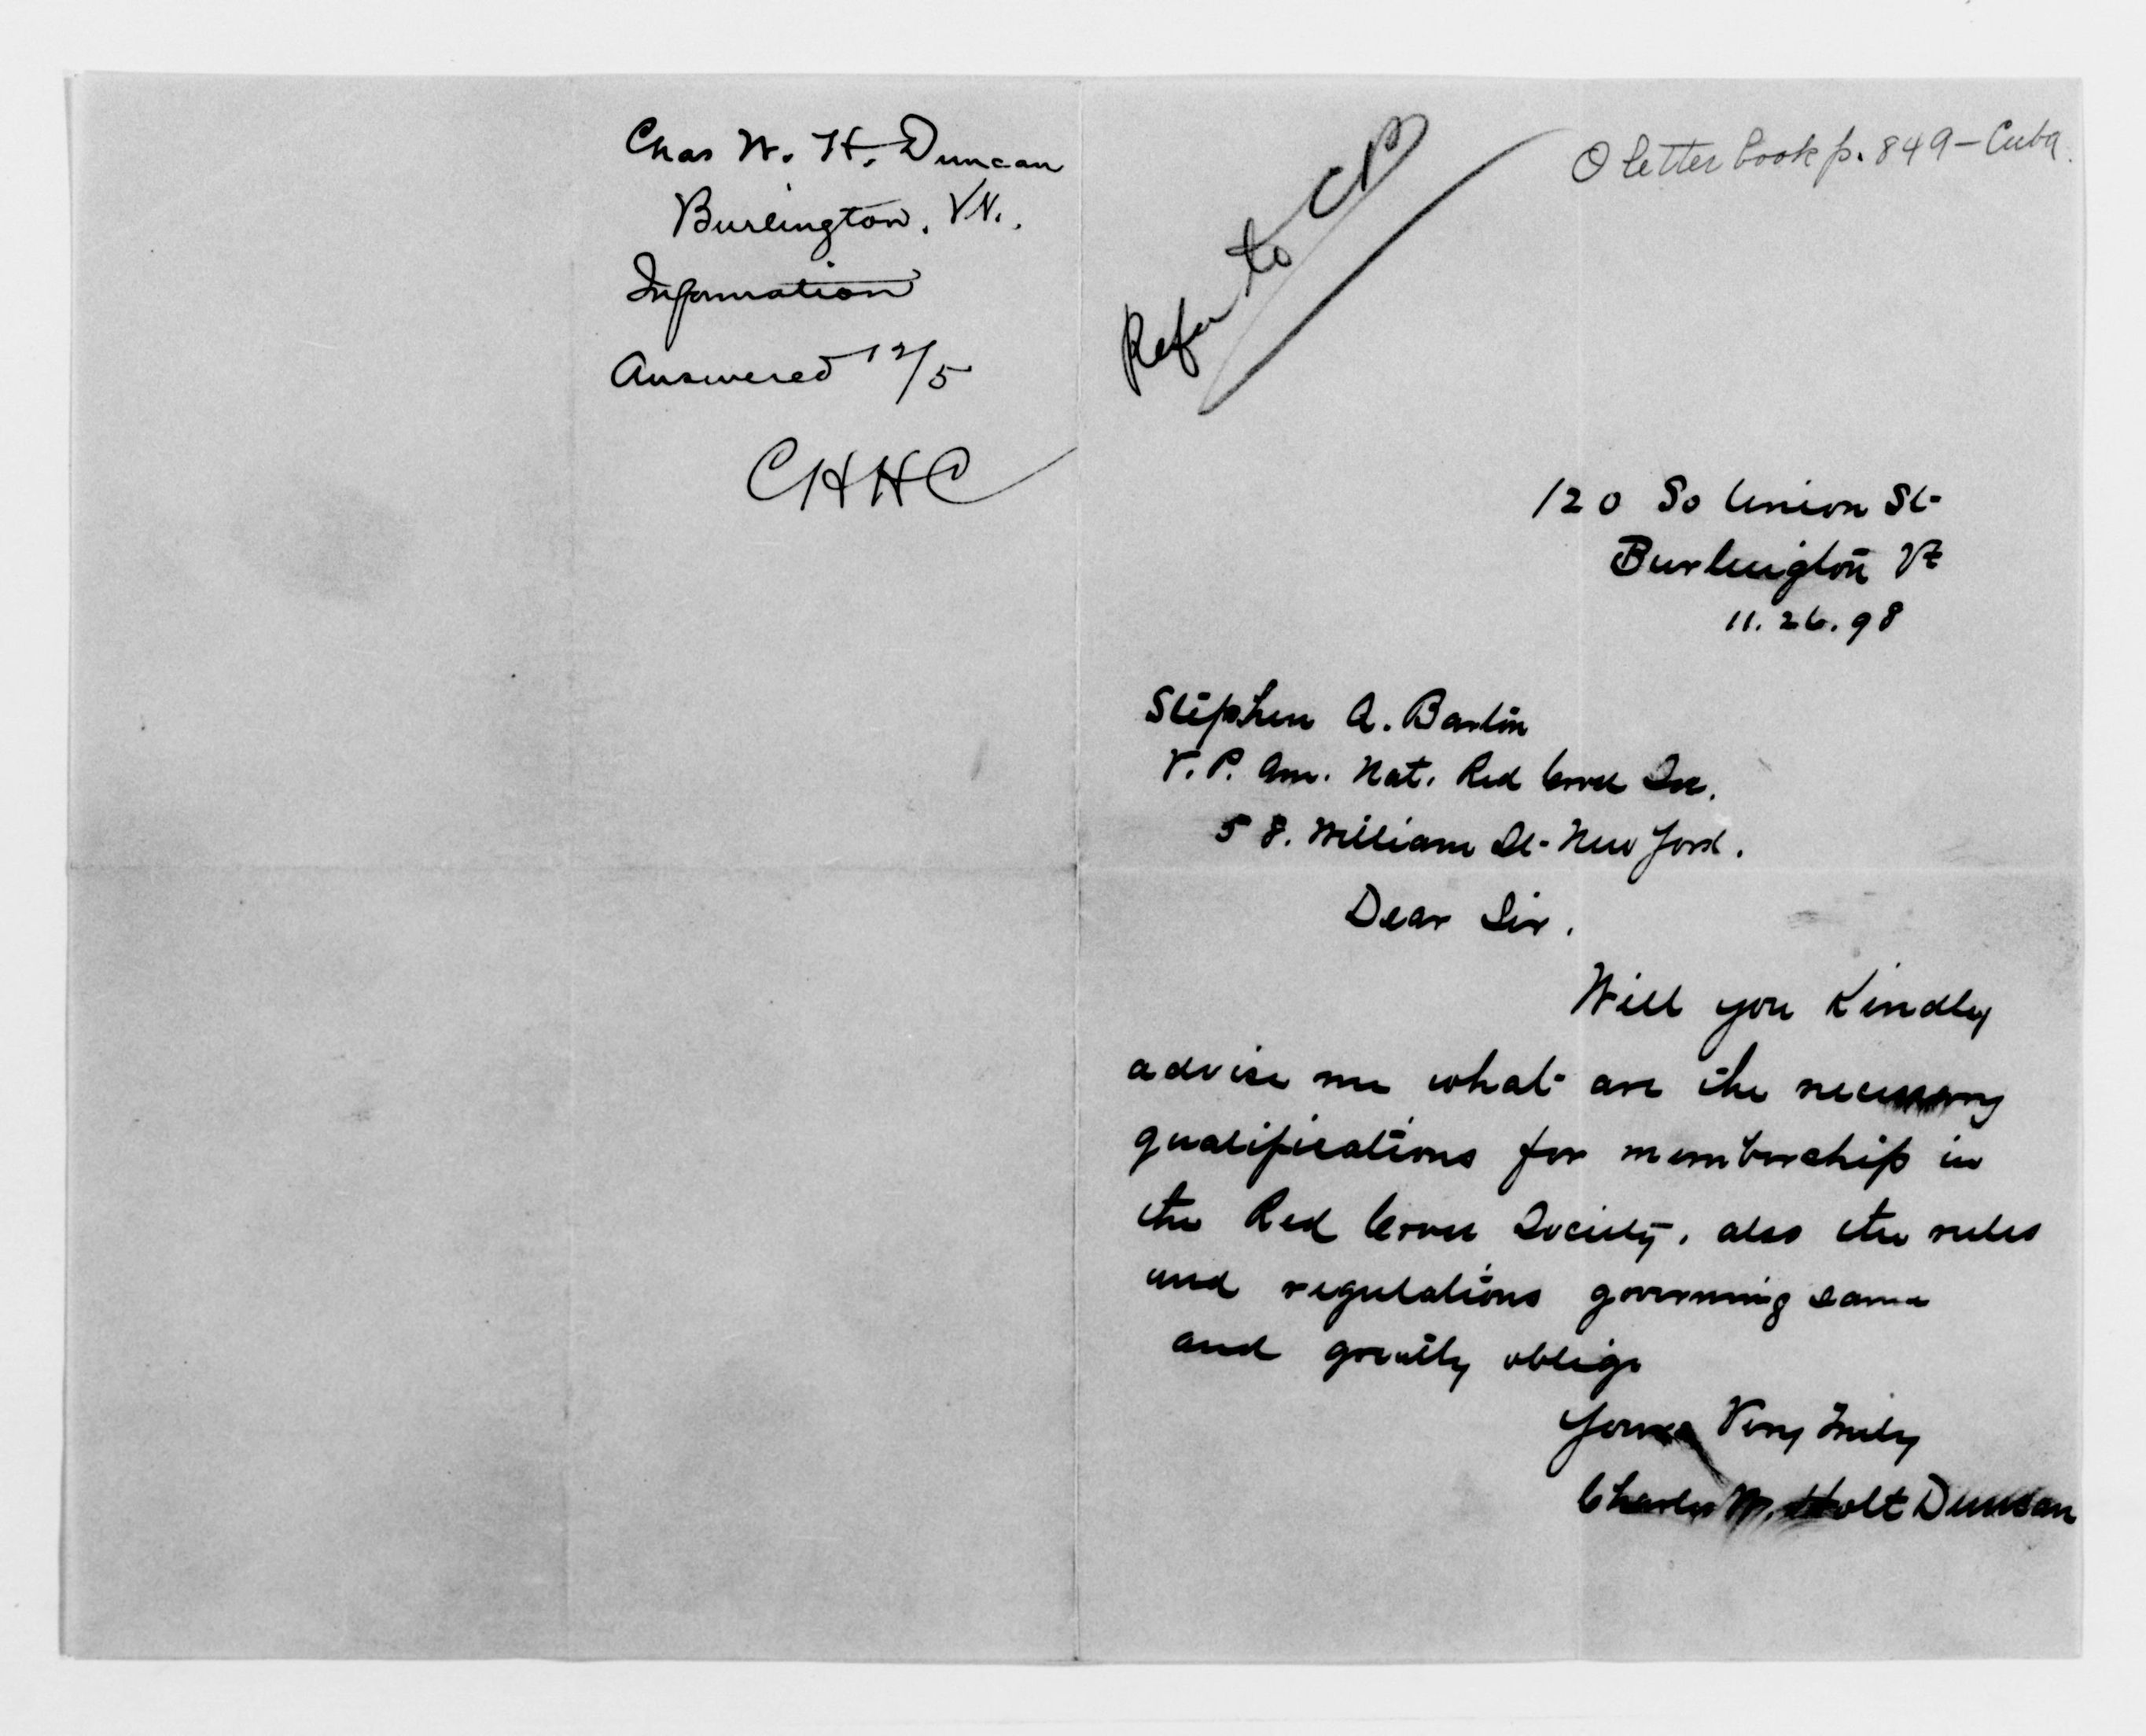 Chas W. H. Duncan
Burlington, Vt.
Information
Answered 12/5
CHHC
Refer to CB
O letter book p. 849 - Cuba.
120 So Union St
Burlington Vt
11.26.98
Stephen A. Barton
V. P. Am. Nat. Red Cross Soc.
58. William St. New York.
Dear Sir.
Will you Kindly
advise me what are the necessary
qualifications for membership in
the Red Cross Society, also the rules
and regulations governing same
and greatly oblige
Yours Very Truly
Charles W. Holt Duncan